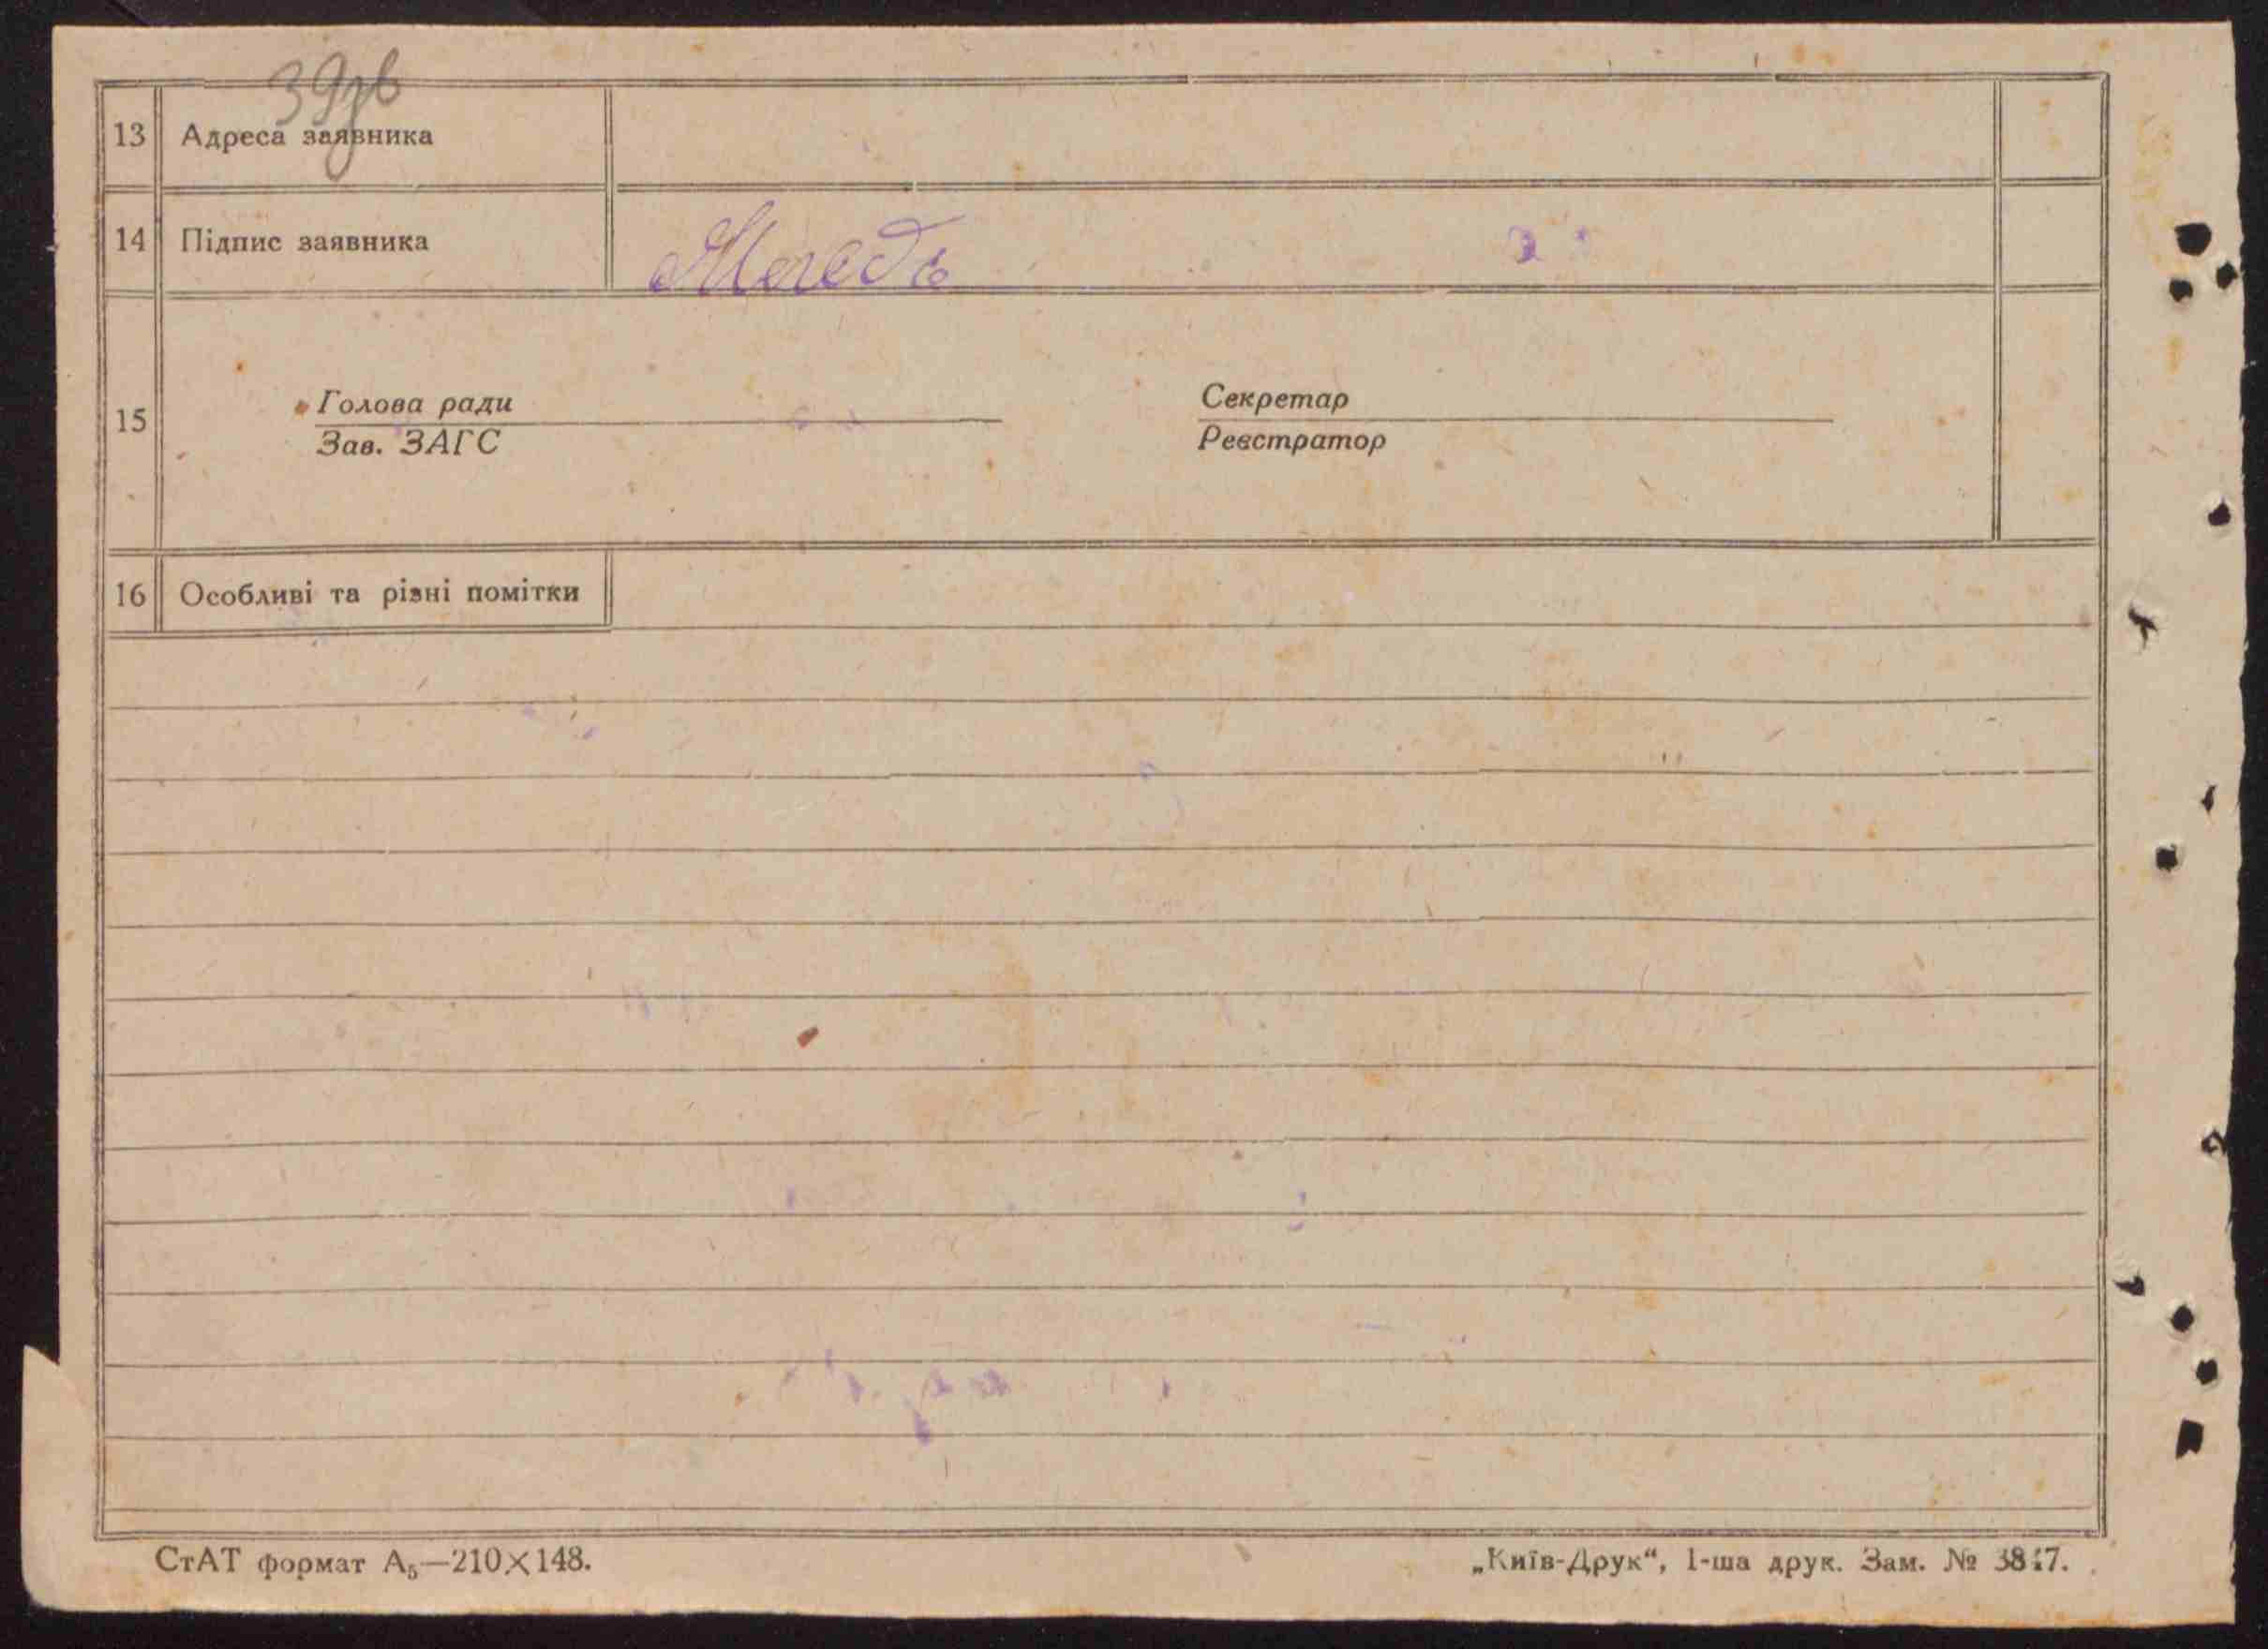 39зв
13 Адреса заявника
14 Підпис заявника
15 Голова ради Секретар
Зав. ЗАГС Реєстратор
16 Особливі та різні помітки
СтАТ формат А₅—210×148. „Київ-Друк“, 1-ша друк. Зам. №